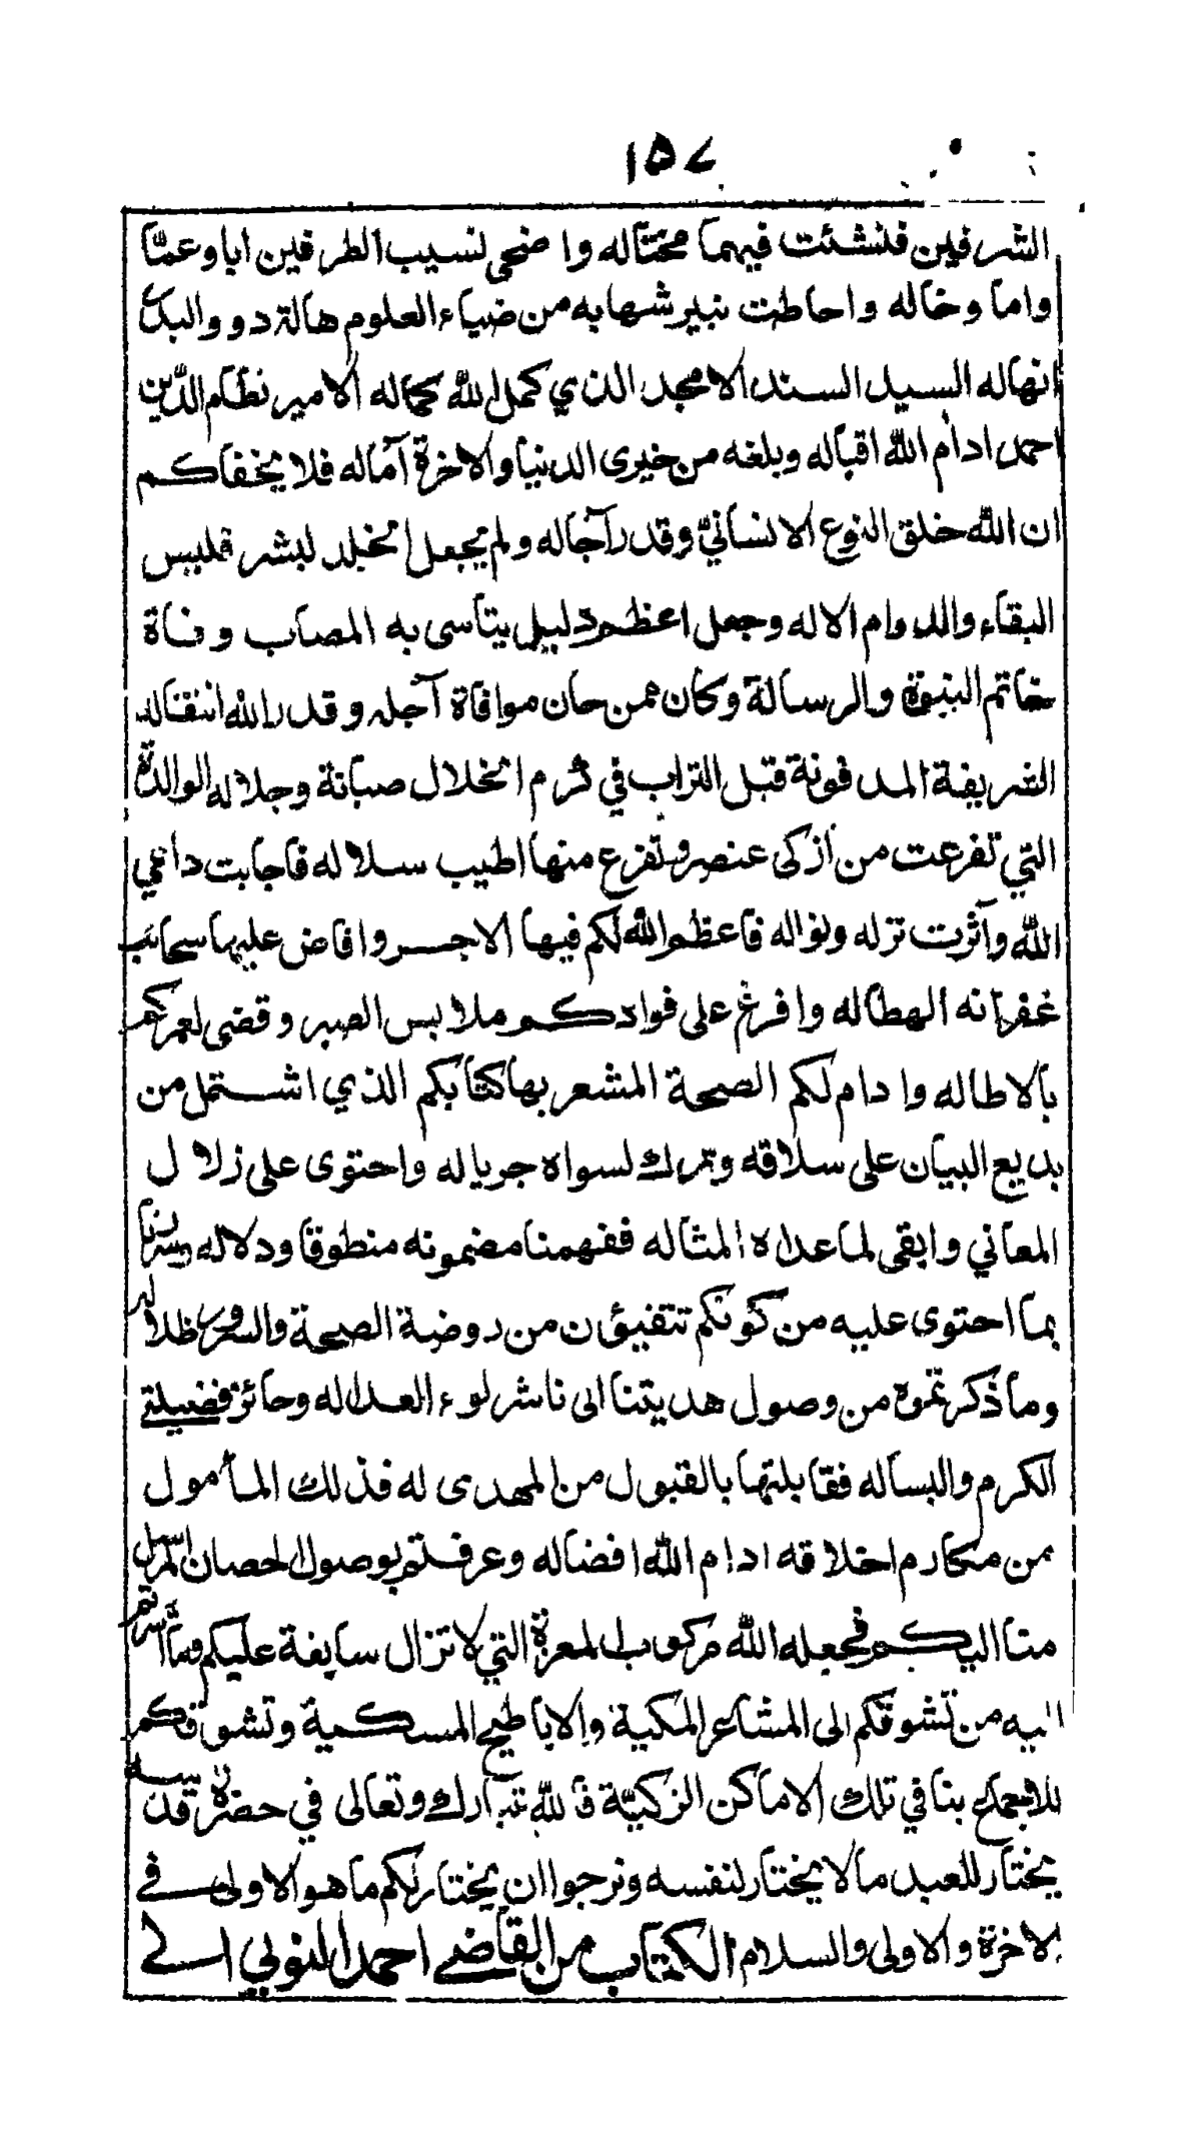 ١٥٧
الشرفين فنشئت فيهما مختاله واضحى لنسيب الطرفين ابا وعمّا
واما وخاله واحاطت بنير شهابه من ضياء العلوم هالة
انهاله السيد السند الامجد الذي كمل الله كماله الامير نظام الدّين
احمد ادام الله اقباله وبلغه من خيرى الدنيا والاخرة آماله فلا يخفاكم
ان الله خلق النوع الانسانيّ وقدر آجاله ولم يجعل الخلد لبشر فليس
البقاء والدوام الا له وجعل اعظم دليل يتأسى به المصاب وفاة
خاتم النبوة والرسالة وكان ممن حان موافاة آجله وقدر الله انتقاله
الشريفة المدفونة قبل التراب في كرم الخلال صيانة وجلاله الوالدة
التي تفرعت من ازكى عنصر وتفرع منها اطيب سلاله فاجابت داعي
الله وآثرت نزله ونواله فاعظم الله لكم فيها الاجر وافاض عليها سحائب
غفرانه الهطاله وافرغ على فوادكم ملابس الصبر وقضى لعمركم
بالاطاله وادام لكم الصحة المشعر بها كتابكم الذي اشتمل من
بديع البيان على سلافه وترك لسواه جرياله واحتوى على زلال
المعاني وابقى لما عداه المثاله ففهمنا مضمونه منطوقا ودلاله وسرنا
بما احتوى عليه من كونكم تتفيؤن من روضة الصحة والسرور ظلاله
وما ذكرتموه من وصول هديتنا الى ناشر لوء العداله وحائز فضيلتي
الكرم والبساله فقابلتها بالقبول من المهدى له فذلك المأمول
من مكارم اخلاقه ادام الله افضاله وعرفتم بوصول الحصان المرسل
منا اليكم فجعله الله مركوب المعزة التي لا تزال سابغة عليكم وما اشرتم
اليه من تشوقكم الى المشاعر المكية والاباطيح المسكية وتشوقكم
للاجتماع بنا في تلك الاماكن الزكيّة فالله تبارك وتعالى في حضرة قدسه
يختار للعبد ما لا يختار لنفسه ونرجوا ان يختار لكم ما هو الاولى في
الاخرة والاولى والسلام الكتاب من القاضي احمد المنوبي الى